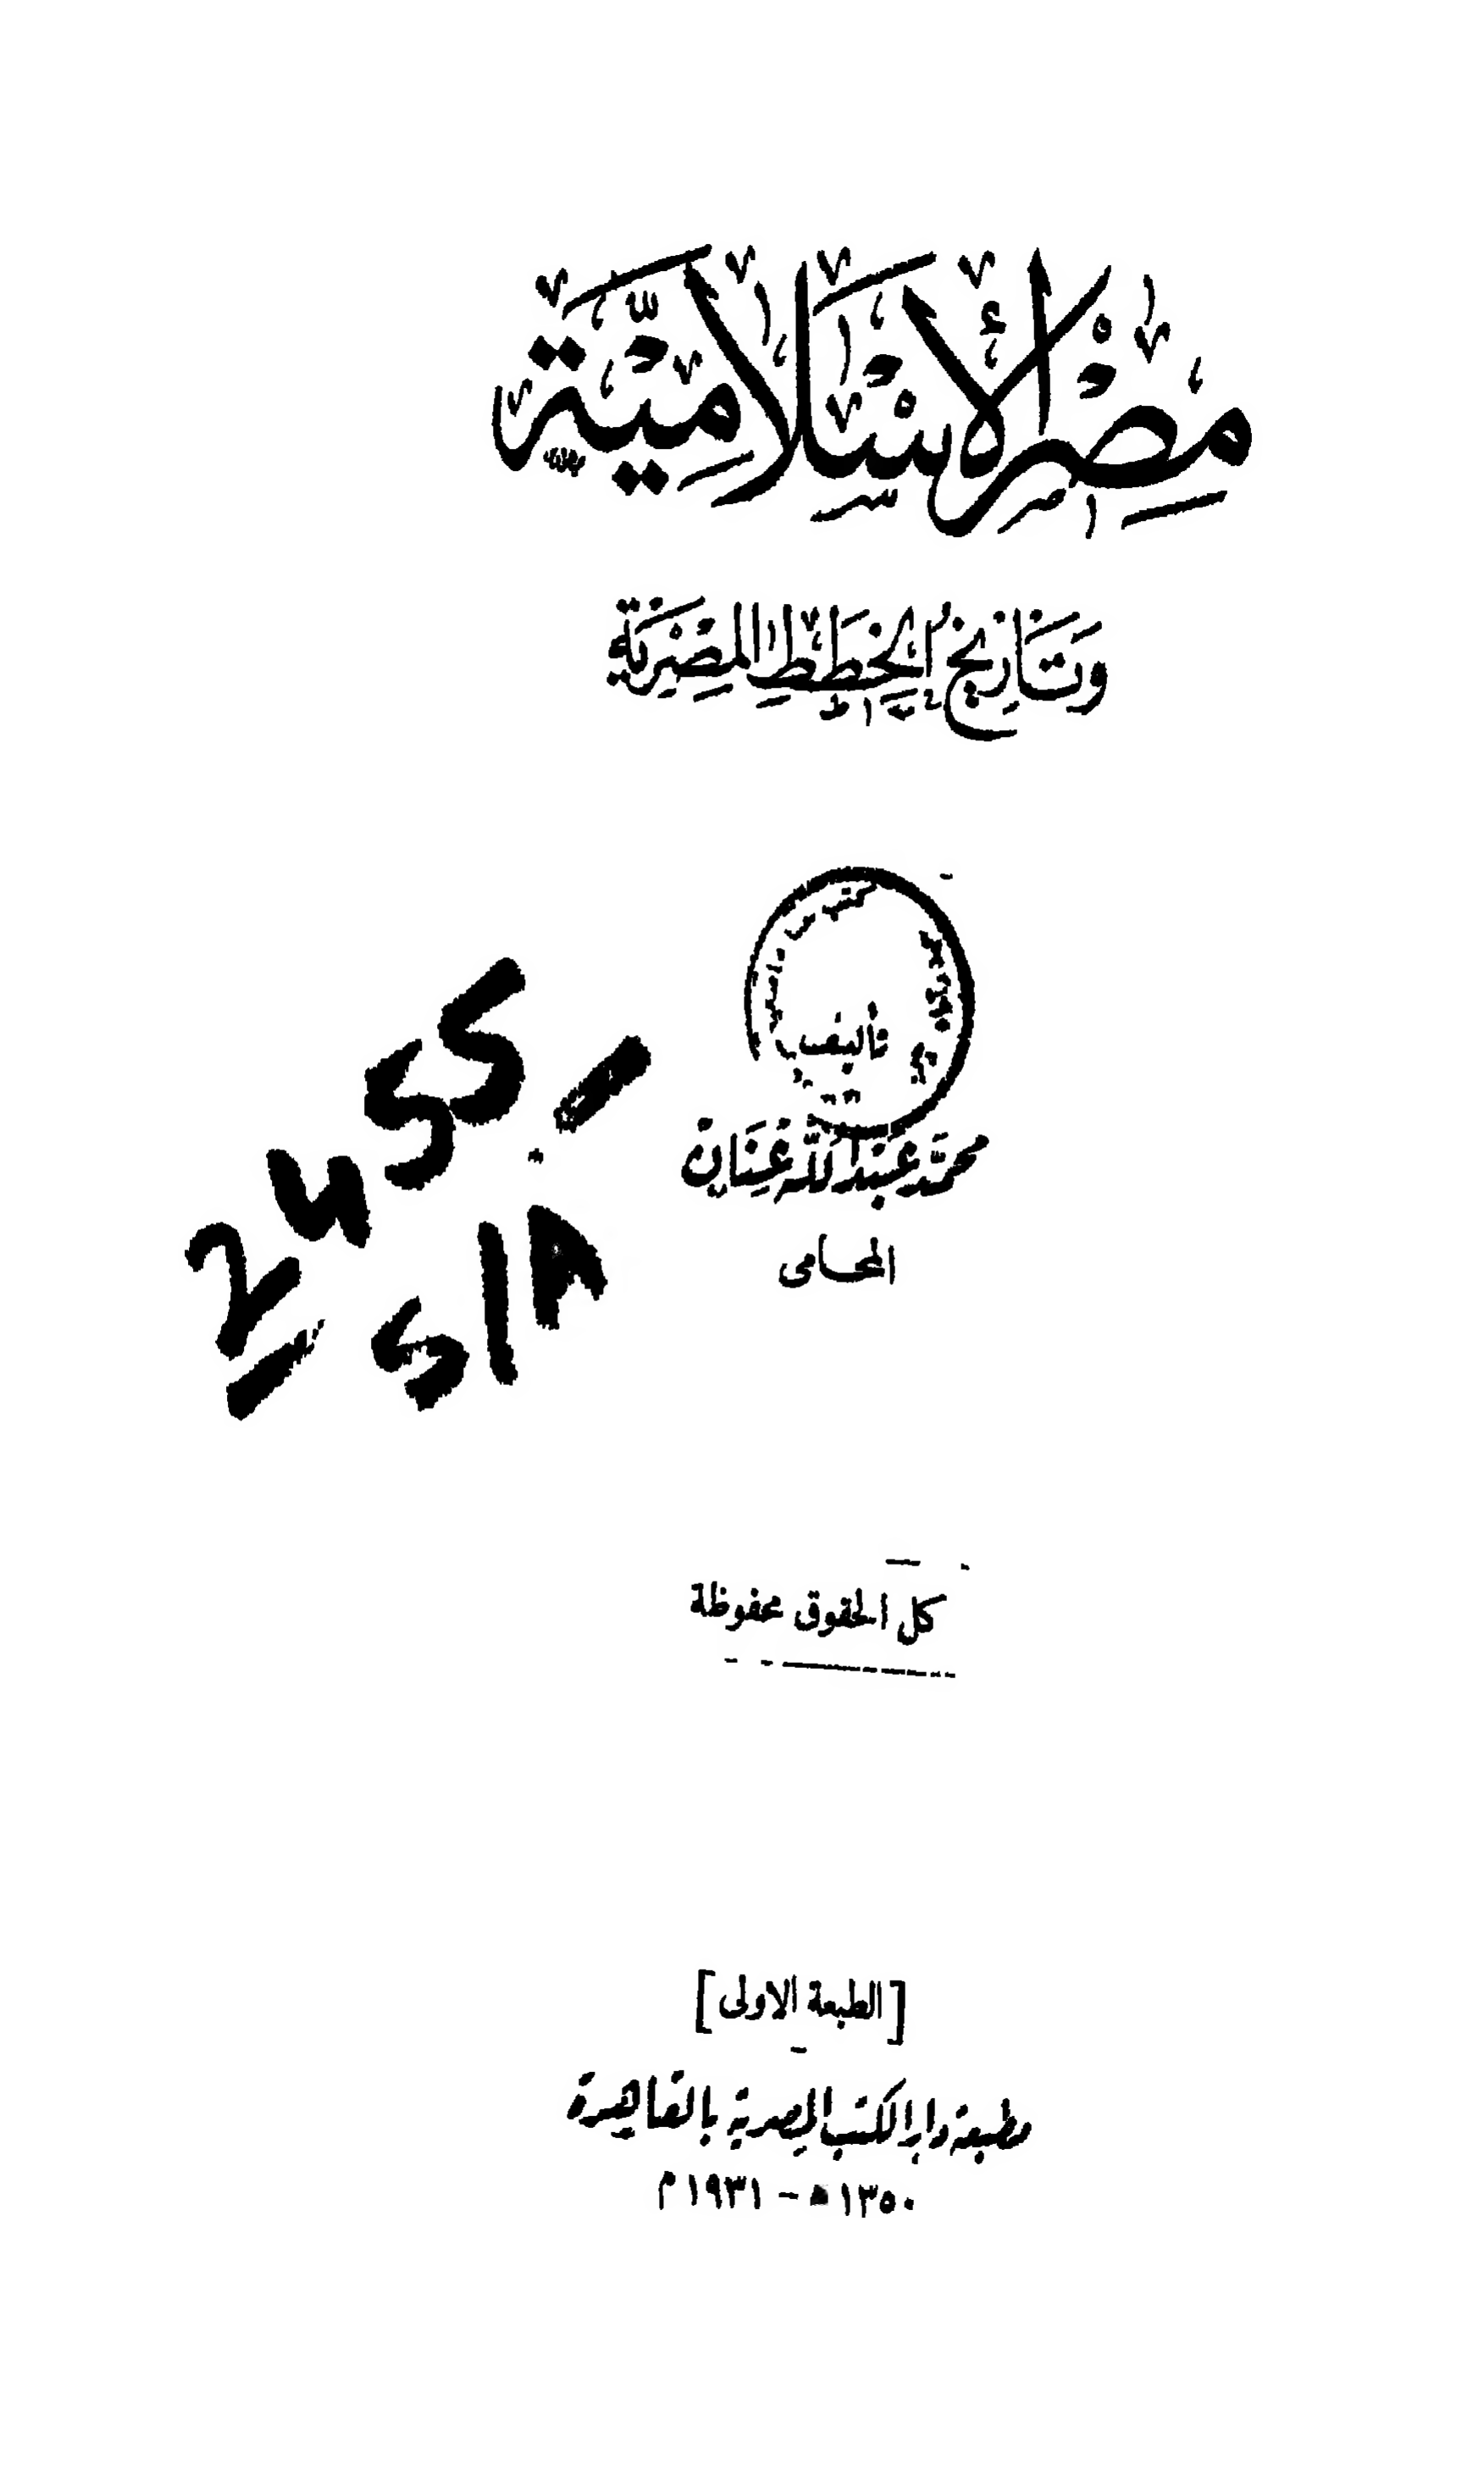 مصر الإسلامية
وتاريخ الخطط المصرية
تأليف
محمد عبد الله عنان
المحامى
2455
5/A
كل الحقوق محفوظة
[الطبعة الاولى]
مطبعة دار الكتب المصرية بالقاهرة
١٣٥٠ه - ١٩٣١م